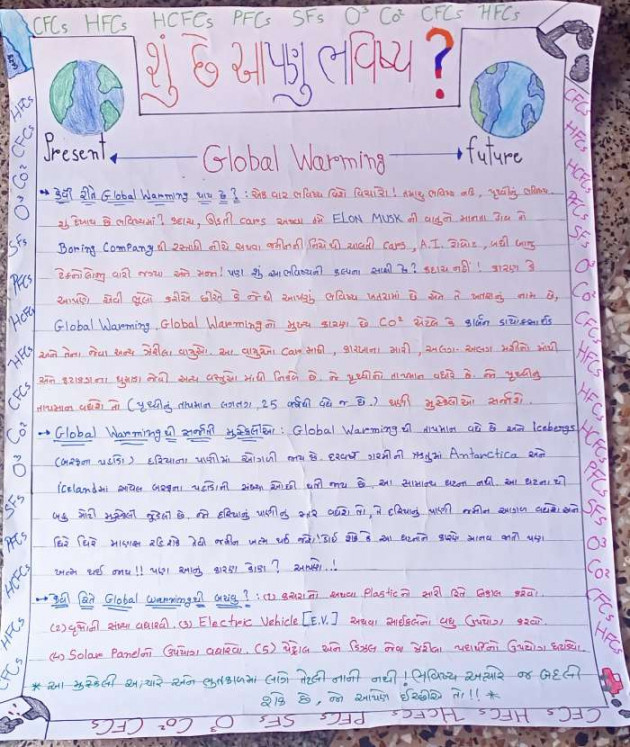 CFCs HFCs HCFCs PFCs SFs O³ Co² CFCs HFCs
શું છે આપણુ ભવિષ્ય ?
Present Global Warming future
કેવી રીતે Global Warming થાય છે ? : એક વાર ભવિષ્ય વિશે વિચારો ! તમારુ ભવિષ્ય નહિ, પૃથ્વીનું ભવિષ્ય
શું દેખાય છે ભવિષ્યમાં? કદાચ, ઉડતી cars અથવા તમે ELON MUSK ની વાતુને માનતા હોવ તો
Boring Company થી રસ્તાની નીચે અથવા જમીનની નીચેથી ચાલતી cars, A.I. રોબોટ, બધી બાજુ
ટેક્નોલોજી વારી જગ્યા અને મજા! પણ શું આ ભવિષ્યની કલ્પના સાચી છે? કદાચ નહી ! કારણ કે
આપણે એવી ભૂલો કરીએ છીએ કે જેથી આપણું ભવિષ્ય ખતરામાં છે અને તે ખતરાનું નામ છે,
Global Warming. Global Warming નો મુખ્ય કારણ છે CO² એટલે કે કાર્બન ડાયોક્સાઈડ
અને તેના જેવા અન્ય ઝેરીલા વાયુઓ. આ વાયુઓ Car માથી, કારખાના માથી, અલગ-અલગ મશીનો માંથી
અને કચરાના ધુમાડા જેવી અન્ય વસ્તુઓ માંથી નિકળે છે. જે પૃથ્વીનો તાપમાન વધારે છે. જો પૃથ્વીનુ
તાપમાન વધશે તો (પૃથ્વીનું તાપમાન લગભગ, 25 વર્ષથી વધે જ છે.) ઘણી મુશ્કેલીઓ સર્જાશે.
Global Warming થી સર્જાતી મુશ્કેલીઓ : Global Warming થી તાપમાન વધે છે અને Icebergs
(બરફના પહાડો) દરિયાના પાણીમાં ઓગળી જાય છે. દરવર્ષે ગરમીની ઋતુમાં Antarctica અને
Iceland માં આવેલ બરફના પહાડોની સંખ્યા ઓછી થતી જાય છે. આ સામાન્ય ઘટના નથી. આ ઘટના થી
બહુ મોટી મુશ્કેલી જુડેલી છે. જો દરિયાનું પાણીનુ સ્તર વધશે તો, તે દરિયાનું પાણી જમીન આગળ વધશે અને
ધિરે ધિરે માણસ રહિ શકે તેવી જમીન ખત્મ થઈ જશે! થઈ શકે કે આ ઘટનાને કારણે માનવ જાતી પણ
ખત્મ થઈ જાય !! પણ આનું કારણ કોણ ? આપણે..!
કેવી રિતે Global warming થી બચવુ ? : (1) કચરાનો અથવા Plastic નો સારી રિતે નિકાલ કરવો.
(2) વૃક્ષોની સંખ્યા વધારવી. (3) Electric Vehicle [E.V.] અથવા સાઈકલનો વધુ ઉપયોગ કરવો.
(4) Solar Panel નો ઉપયોગ વધારવો. (5) પેટ્રોલ અને ડિઝલ જેવા ઝેરીલા પદાર્થોનો ઉપયોગ ઘટાડવો.
* આ મુશ્કેલી અત્યારે અને ભુતકાળમાં લાગે તેટલી નાની નથી ! ભવિષ્ય અત્યારે જ બદલી
શકે છે, જો આપણે ઈચ્છીએ તો !! *
CFCs HFCs HCFCs PFCs SFs O³ Co² CFCs
HFCs
CFCs
Co²
O³
SFs
PFCs
HCFCs
HFCs
CFCs
Co²
O³
SFs
PFCs
HCFCs
HFCs
CFCs
CFCs
HFCs
HCFCs
PFCs
SFs
O³
Co²
CFCs
HFCs
HCFCs
PFCs
SFs
O³
Co²
CFCs
HFCs